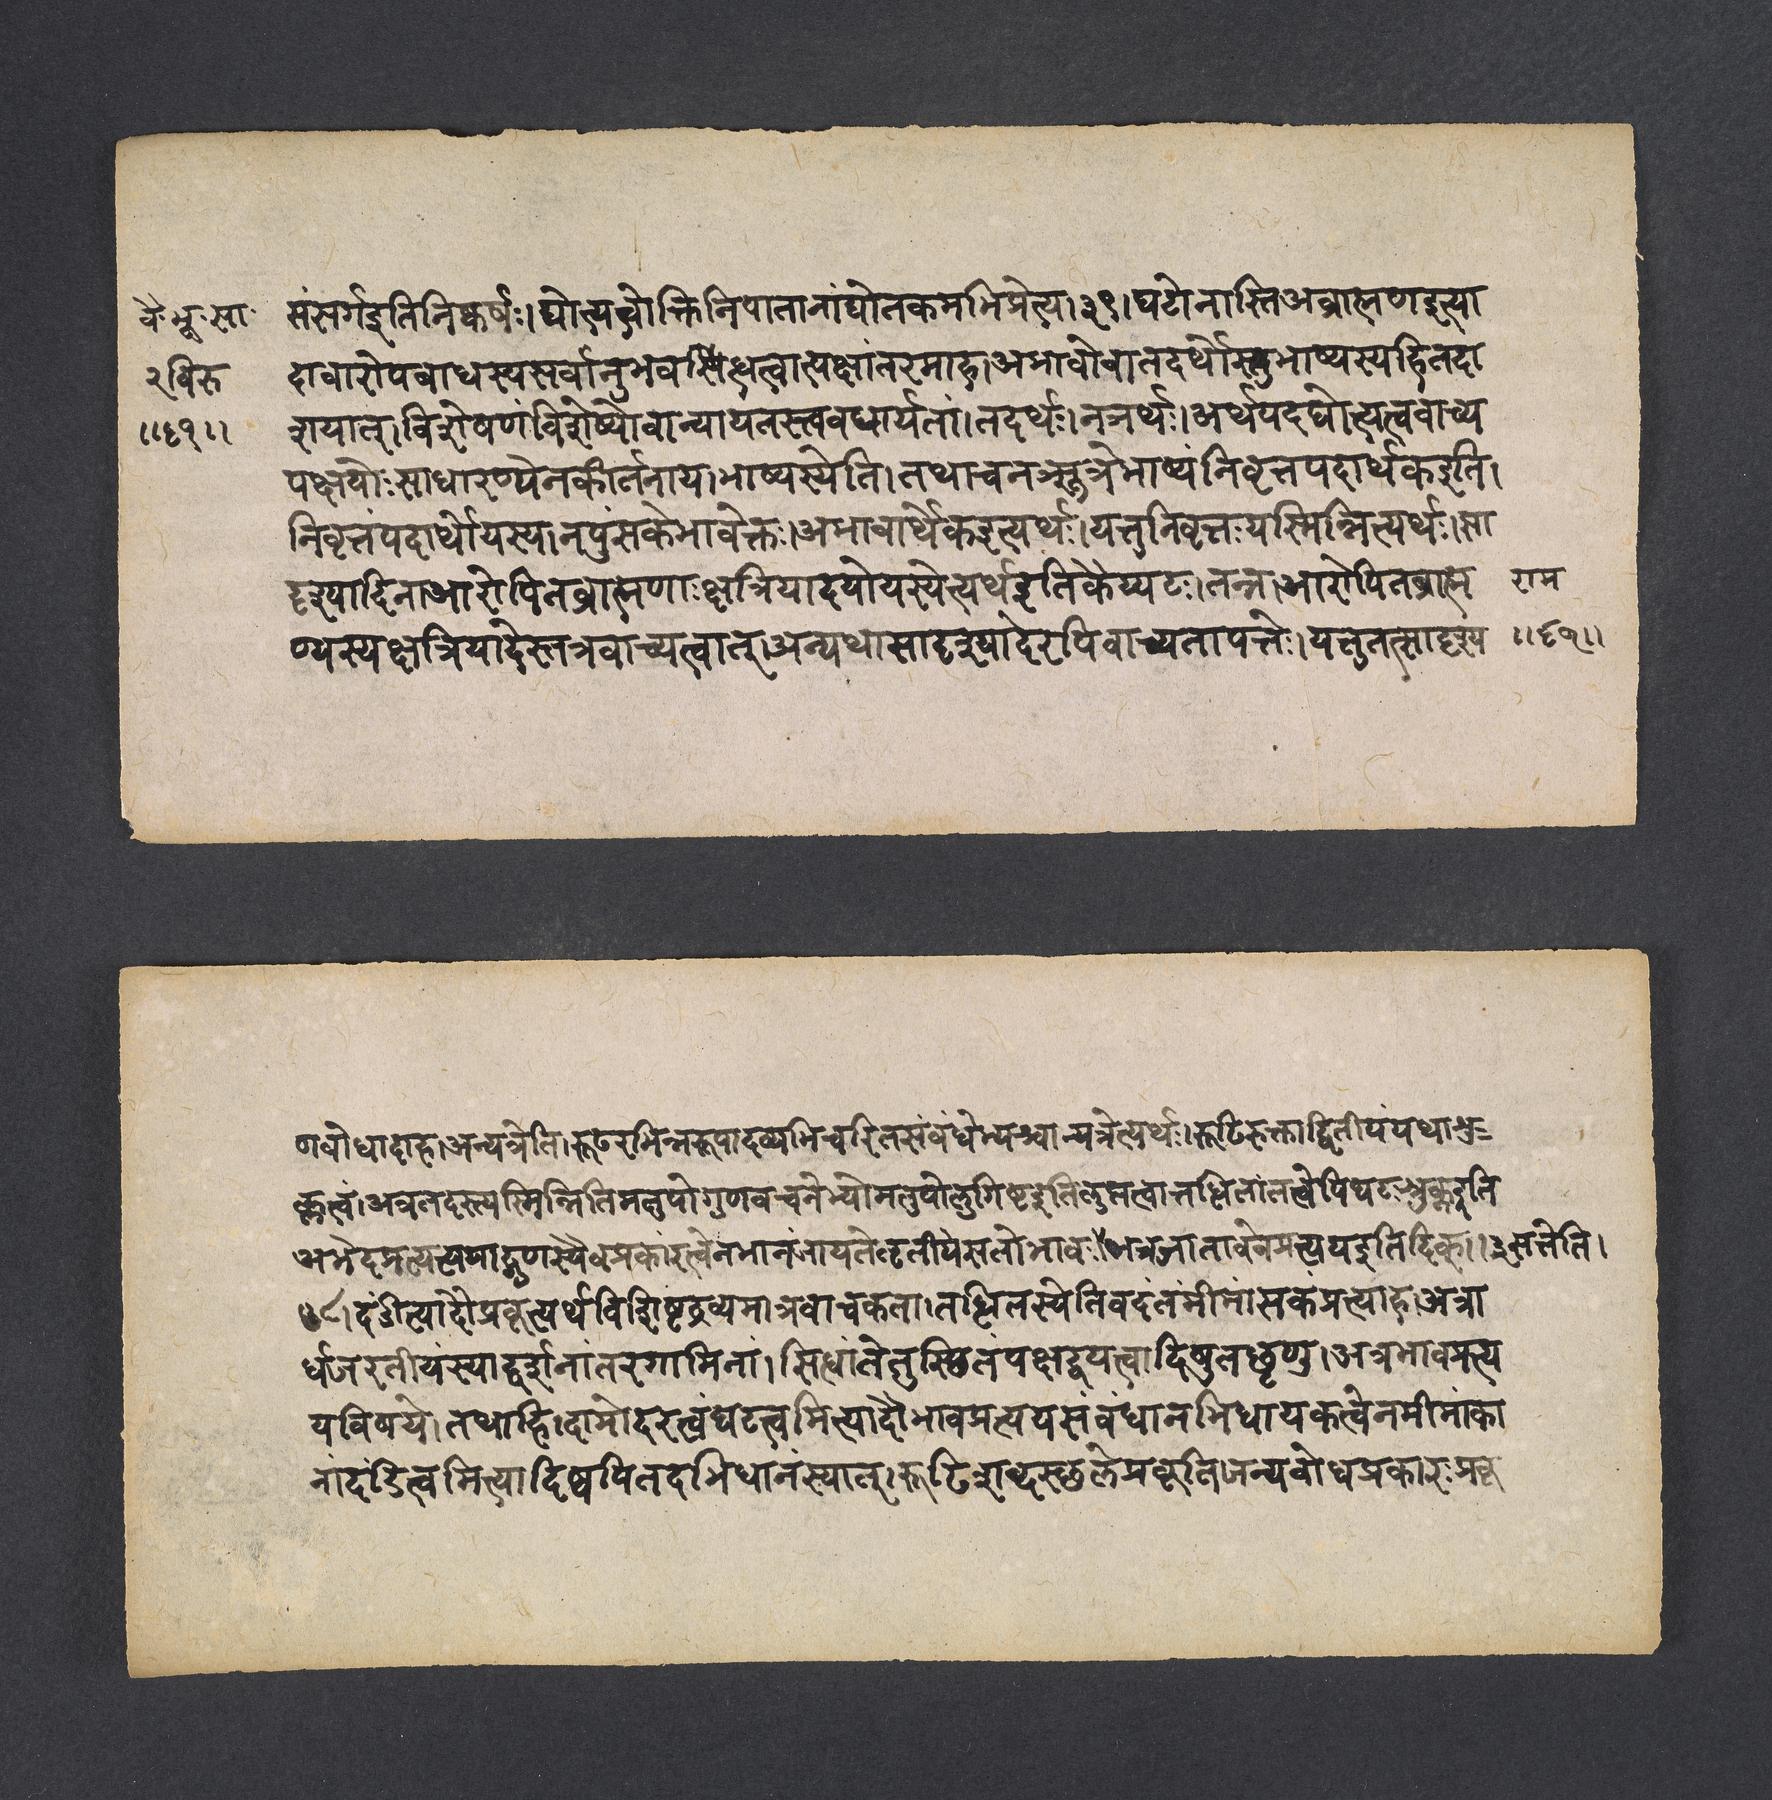 वै॰भू॰सा॰
रविरु
॥६१॥
संसर्गइतिनिष्कर्षः।द्योत्यत्वोक्तिनिपातानांद्योतकमभिप्रेत्य।३९।घटोनास्तिअब्राह्मणइत्या
दावारोपबोधस्यसर्वानुभवसिध्धत्वात्पक्षांतरमाह।अभावोवातदर्थोस्तुभाष्यस्यहितदा
शयात्।विशेषणंविशेष्योवान्यायतस्त्ववधार्यतां।तदर्थः।नञर्थः।अर्थपदद्योत्यत्ववाच्य
पक्षयोःसाधारण्येनकीर्तनाय।भाष्यस्येति।तथाचनञ्सूत्रेभाष्यंनिवृत्तपदार्थकइति।
निवृत्तंपदार्थोयस्य।नपुंसकेभावेक्तः।अभावार्थकइत्यर्थः।यत्तुनिवृत्तःयस्मिन्नित्यर्थः।सा
दृश्यादिनाआरोपितब्राह्मणाःक्षत्रियादयोयस्येत्यर्थइतिकैय्यटः।तन्न।आरोपितब्राह्म
ण्यस्यक्षत्रियादेस्तत्रवाच्यत्वात्।अन्यथासादृश्यादेरपिवाच्यतापत्तेः।यत्तुतत्सादृश्यं
राम
॥६१॥
णबोधादाह।अन्यत्रेति।रूढेरभिन्नरूपादव्यभिचरितसंबंधेभ्यश्चान्यत्रेत्यर्थः।रूढिरुक्ताद्वितीयंयथाशु
क्लत्वं।अत्रतदस्त्यस्मिन्नितिमतुपोगुणवचनेभ्योमतुपोलुगिष्टइतिलुप्तत्वात्तध्धितांतत्वेपिघटःशुक्लइति
अभेदप्रत्ययाद्गुणस्यैवप्रकारत्वेनभानंजायतेतृतीयंसतोभावः।अत्रजातावेवप्रत्ययइतिदिक्।।सत्तेति।
दंडीत्यादौप्रकृत्यर्थविशिष्टद्रव्यमात्रवाचकता।तध्धितस्येतिवदंतंमीमांसकंप्रत्याह।अत्रा
र्धजरतीयंस्याद्दर्शनांतरगामिनां।सिध्धांतेतुस्थितंपक्षद्वयंत्वादिषुतच्छृणु।अत्रभावप्रत्य
यविषये।तथाहि।दामोदरत्वंघटत्वमित्यादौभावप्रत्ययसंबंधानभिधायकत्वेनमीमांका
नांदंडित्वमित्यादिष्वपितदभिधानंस्यात्।रूढिशब्दस्छलेप्रकृतिजन्यबोधप्रकारःप्रकृ